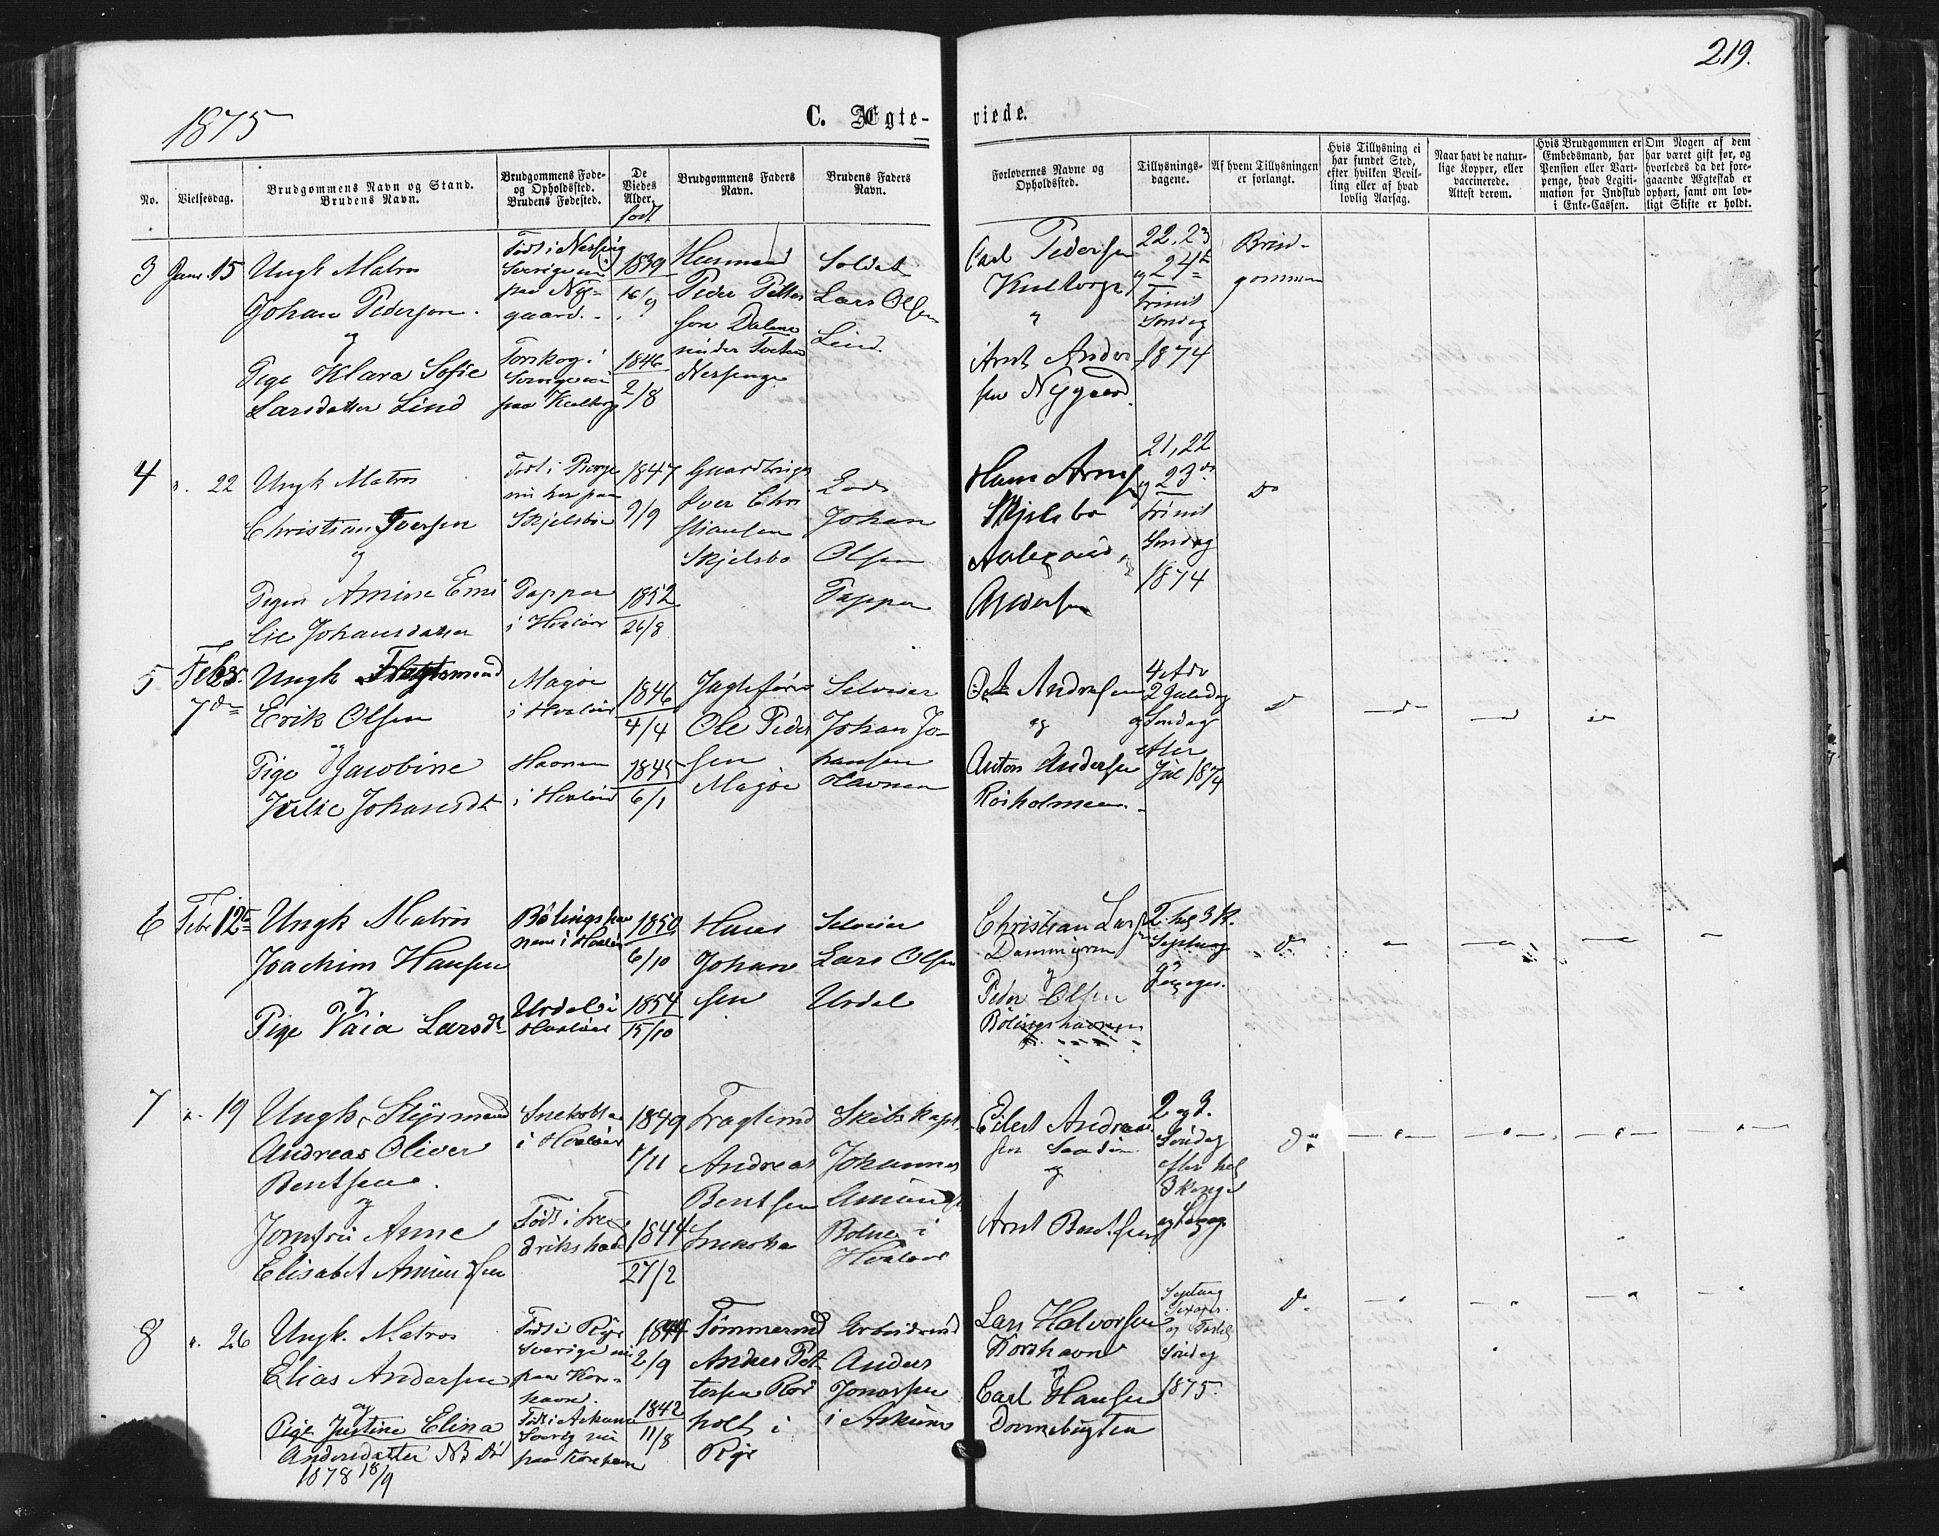 219.
1875
C. Ægte-
viede.
No.
Vielsesdag.
Brudgommens Navn og Stand.
Brudens Navn.
Brudgommens Føde-
og Opholdssted.
Brudens Fødested.
De
Viedes
Alder.
født
Brudgommens Faders
Navn.
Brudens Faders
Navn.
Forlovernes Navne og
Opholdssted.
Tillysnings-
dagene.
Af hvem Tillysningen
er forlangt.
Hvis Tillysning ei
har fundet Sted,
efter hvilken Bevil-
ling eller af hvad
lovlig Aarsag.
Naar havt de natur-
lige Kopper, eller
vaccinerede.
Attest derom.
Hvis Brudgommen er
Embedsmand, har
Pension eller Vart-
penge, hvad Legiti-
mation for Indskud
i Enke-Cassen.
Om Nogen af dem
har været gift før, og
hvorledes da det fore-
gaaende Ægteskab er
ophørt, samt om lov-
ligt Skifte er holdt.
3 Janr. 15
Ungk Matros
Johan Pedersen.
og
Pige Klara Sofie
Larsdatter Lind
Født i
Sverige nu
paa Ny-
gaard.
Torskog i
Sverige nu
paa
1839
16/9
1846
2/8
Husmand
Peder Petter
son Dalene
under
Soldat
Lars Olsen
Lind.
Carl Pedersen
og
Arnt Ander
sen Nygaard
22, 23
og 24de
Trinit
Søndag
1874
Brud-
gommen
4 ". 22
Ungk Matros
Christian Iversen
og
Pigen Amine Emi
lie Johansdatter
Født i Borge
nu her paa
Skjelsbo
Papper
i Hvaløer
1847
9/9
1852
26/8
Iver Chri
stiansen
Skjelsbo
Lods
Johan
Olsen
Papper
Hans Arnts
Skjelsbo
og
Andersen
21, 22
og 23de
Trinit
Søndag
1874
do
5 Febr.
7de
Ungk Fragtemand
Erik Olsen
og
Pige Jacobine
Julie Johansdt
Magøe
i Hvaløer
Havnen
i Hvaløer
1846
4/4
1845
6/1
Jagtefører
Ole Peder
sen
Magøe
Selveier
Johan Jo-
hansen
Havnen
Andresen
og
Anton Andersen
Røsholmen.
4 Adv
2 Juledag
og Søndag
efter
Jul 1874
do
6 Febr 12te
Ungk Matros
Joachim Hansen
og
Pige Vaia Larsdt
Bølingshav
nen i Hvaløer
Urdal i
Hvaløer
1850
6/10
1854
15/10
Hans
Johan
sen
Selveier
Lars Olsen
Urdal
Christian Lars
og
Peder Olsen
Bølingshavnen
2 hel 3 K.
Septuag
do
7 ". 19
Ungk. Styrmand
Andreas Oliver
Bentsen.
og
Jomfru Anne
Elisabet Amundsen
i Hvaløer
Født i Fre
drikstad
1849
1/11
1844
27/2
Fragtemd
Andreas
Bentsen
Skibskapt.
Johannes
Amunds
i
Hvaløer
Eilert Andrea
sen
og
Arnt Bentsen
2 og 3.
Søndag
efter hel
3 Konge
do
8 ". 26
Ungk. Matros
Elias Andersen
og
Pige Justine Elina
Andersdatter NB Død
1878 18/9
Født i
Sverige nu
paa Kors-
havn.
Født i Askum
Sverig nu
paa Korshavn
1844
2/9
1842
11/8
Tømmermd
Anders Pet
tersen
holt i
Arbeidsmd
Anders
Jonassen
i Askums
Lars Halvorsen
Korshavn
og
Carl Hansen
Dommebugten
Septuag
Sexages.
og Fastel
Søndag
1875.
do